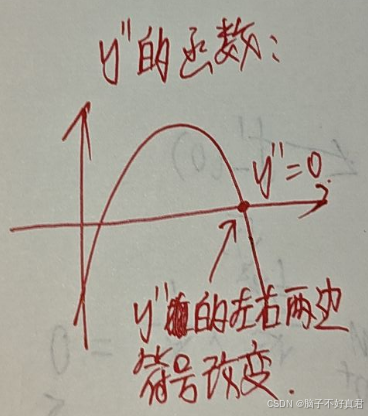 y''的函数：
y''=0.
y''的左右两边
符号改变.
CSDN @脑子不好真君